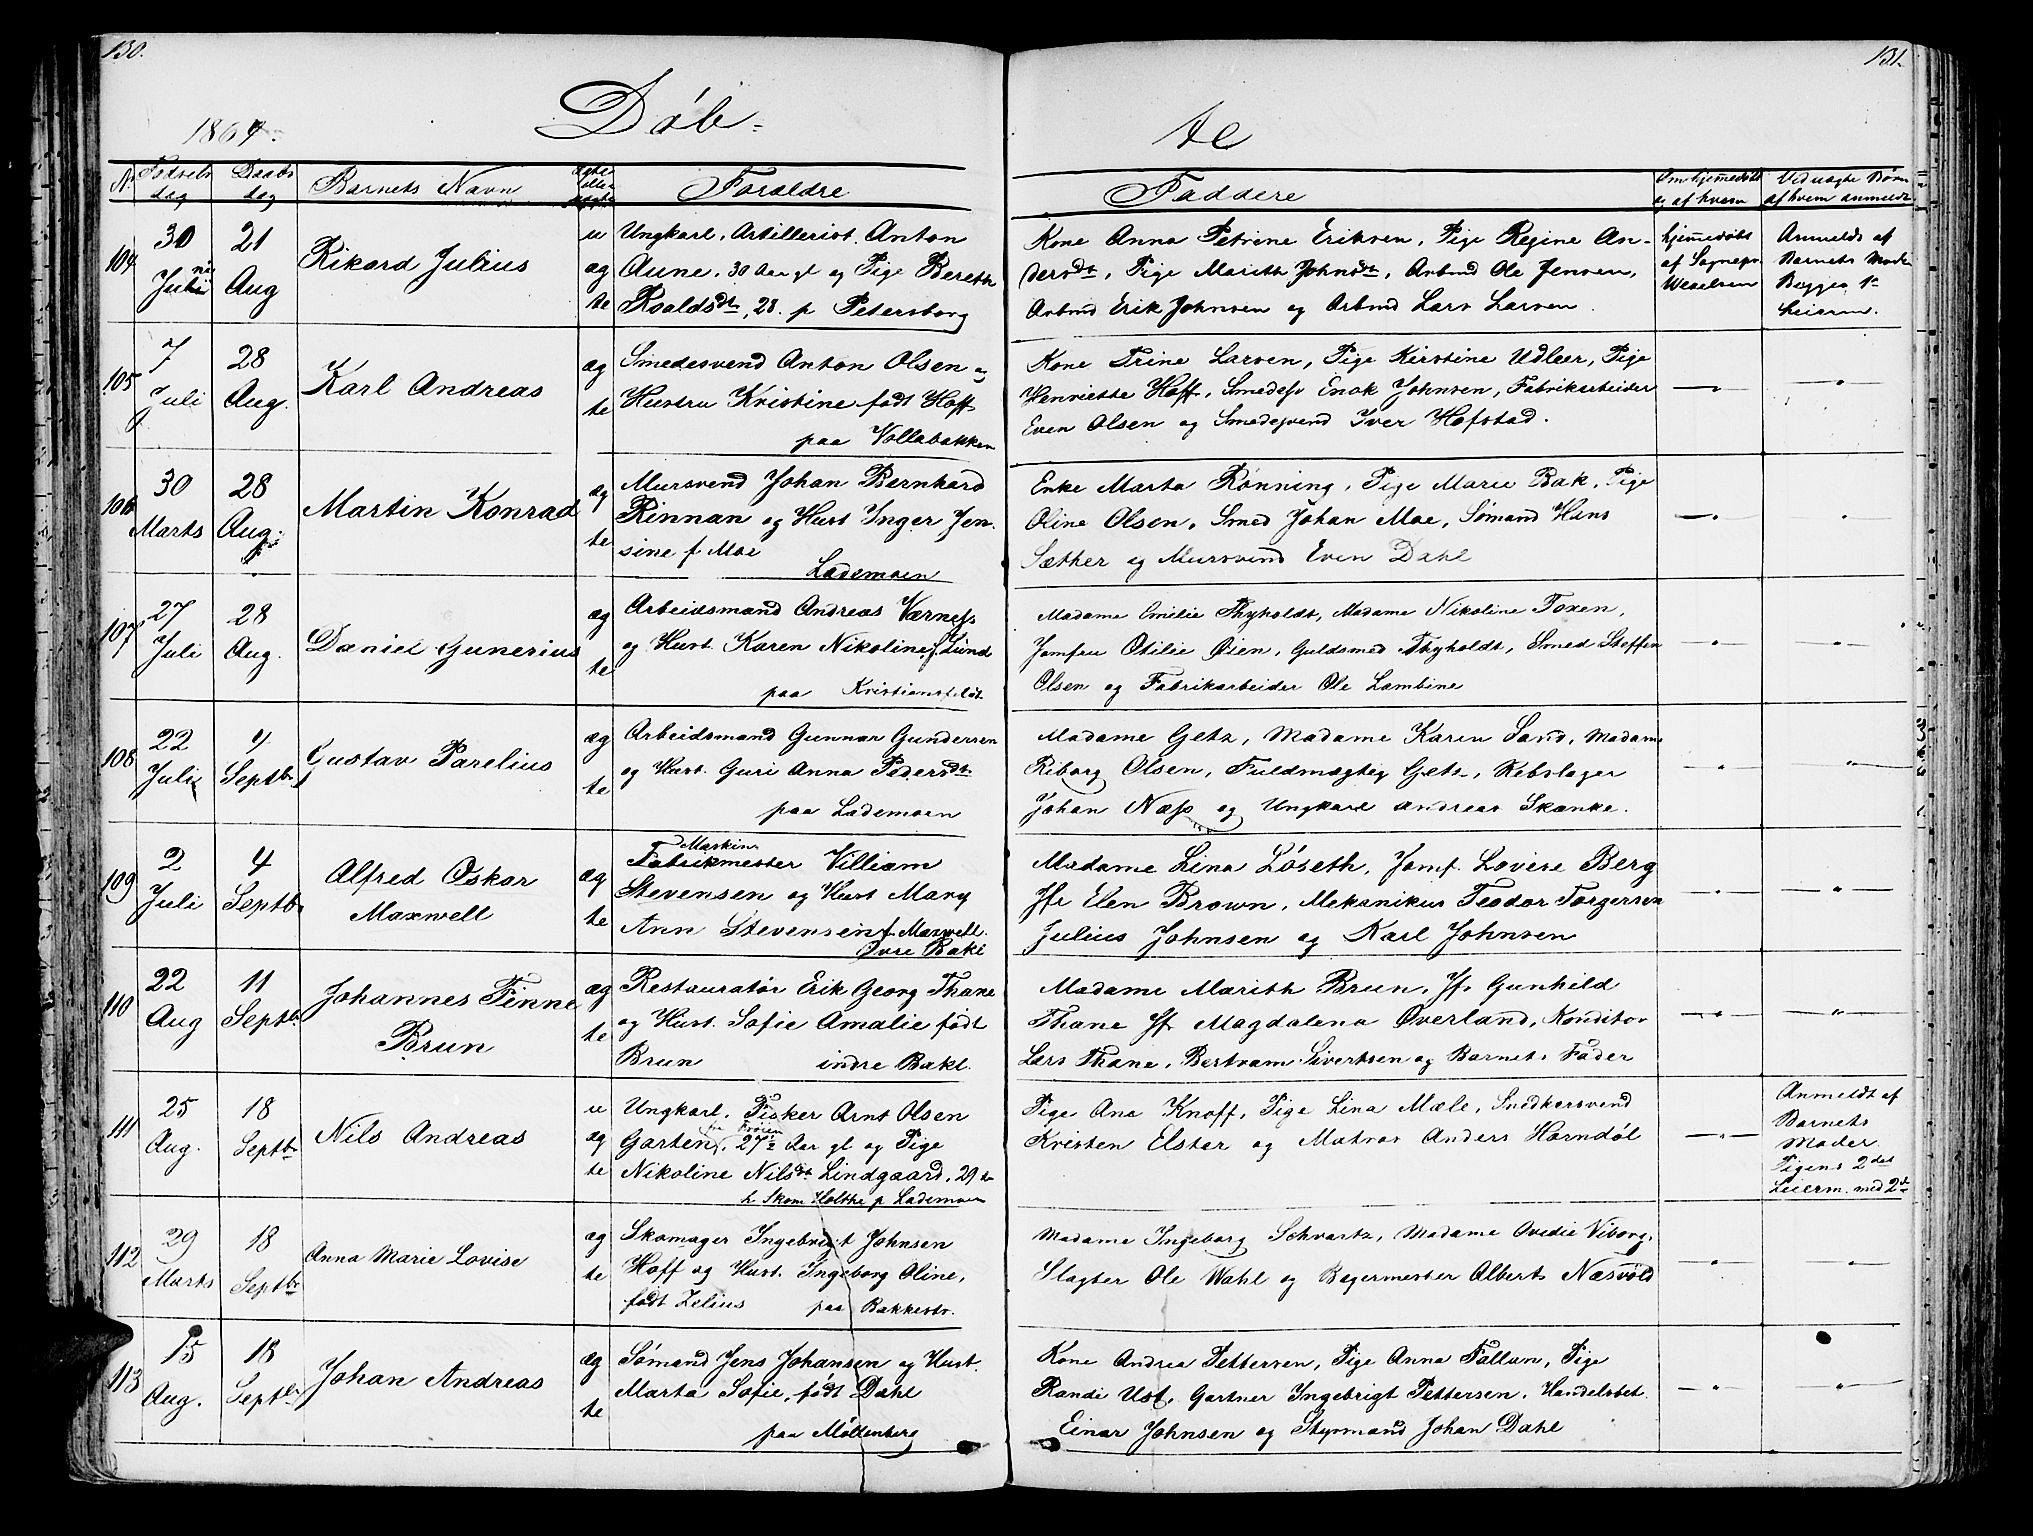 130.
131.
Døb-
te
1864.
Nr
Fødsels
dag
Daabs
dag
Barnets Navn
Forældre
Faddere
Om hjemmedøbt
og af hvem
Ved uægte Børn
af hvem anmeldt
104
30
Juni
21
Aug
Rikard Julius
u
æg
te
Ungkarl. Artillerist. Anton
Aune. 30 Aar gl og Pige Bereth
Roaldsdt, 28. p Petersborg
Kone Anna Petrine Eriksen, Pige Regine An-
dersdt, Pige Marith Johnsdt, Arbmd Ole Jensen,
Arbmd Erik Johnsen og Arbmd Lars Larsen.
hjemmedøbt
af Sognepr.
Wexelsen
Anmeldt af
Barnets Moder
Begges 1ste
Leierm.
105
7
Juli
28
Aug.
Karl Andreas
æg
te
Smedesvend Anton Olsen og
Hustru Kristine født Hoff
paa Vollabakken
Kone Trine Larsen, Pige Kirstine Udleer, Pige
Henriette Hoff, Smedesv Enok Johnsen, Fabrikarbeider
Even Olsen og Smedesvend Iver Hofstad.
106
30
Marts
28
Aug.
Martin Konrad
æg
te
Mursvend Johan Bernhard
Rinnan og Hust Inger Jen-
sine f Moe
Lademoen
Enke Marta Rønning, Pige Marie Bak, Pige
Oline Olsen, Smed Johan Moe, Sømand Hans
Sæther og Mursvend Even Dahl
107
27
Juli
28
Aug.
Daniel Gunerius
æg
te
Arbeidsmand Andreas Værness
og Hust. Karen Nikoline f. Lund
paa Kristianst.
Madame Emilie Thyholdt, Madame Nikoline Foxen,
Jomfru Otilie Øien, Guldsmed Thyholdt, Smed Steffen
Olsen og Fabrikarbeider Ole Lambine
108
22
Juli
4
Septbr
Gustav Parelius
æg
te
Arbeidsmand Gunnar Gundersen
og Hust. Guri Anna Pedersdt.
paa Lademoen
Madame Getz, Madame Karen Sand, Madame
Riborg Olsen, Fuldmægtig Getz, Rebslager
Johan Næss og Ungkarl Andreas Skanke.
109
2
Juli
4
Septbr
Alfred Oskar
Maxwell
æg
te
Maskin
Fabrikmester Villiam
Stevensen og Hust Mary
Ann Stevensen f. Maxwell.
Øvre Bakl
Madame Lina Løseth, Jomf. Lovise Berg
Jfr Elen Brown, Mekanikus Teodor Torgersen
Julius Johnsen og Karl Johnsen
110
22
Aug
11
Septbr.
Johannes Finne
Brun
æg
te
Restauratør Erik Georg Thane
og Hust. Sofie Amalie født
Brun indre Bakl.
Madame Marith Brun, Jfr Gunhild
Thane Jfr Magdalena Overland, Konditor
Lars Thane, Bertram Sivertsen og Barnets Fader
111
25
Aug.
18
Septbr
Nils Andreas
u
æg
te
Ungkarl. Fisker Arnt Olsen
fra Frøien
Garten, 27 Aar gl og Pige
Nikoline Nilsdt. Lindgaard, 29
h. Skom Holthe p Lademoen
Pige Ana Knoff, Pige Lina Mæle, Snedkersvend
Kristen Elster og Matros Anders Horndøl
Anmeldt af
Barnets
Moder.
Pigens 2det
Leierm. med 2d
112
29
Marts
18
Septbr
Anna Marie Lovise
æg
te
Skomager Ingebrigt Johnsen
Hoff og Hust. Ingeborg Oline,
født Zelius paa Bakkestr.
Madame Ingeborg Schvartz, Madame Ovedie Viborg,
Slagter Ole Wahl og Bøgermester Alberts Næsvold
113
15
Aug.
18
Septbr
Johan Andreas
æg
te
Sømand Jens Johansen og Hust.
Marta Sofie, født Dahl
paa Møllenberg
Kone Andrea Pettersen, Pige Anna Fallan, Pige
Randi Ust, Gartner Ingebrigt Pettersen, Handelsbet.
Einar Johnsen og Styrmand Johan Dahl